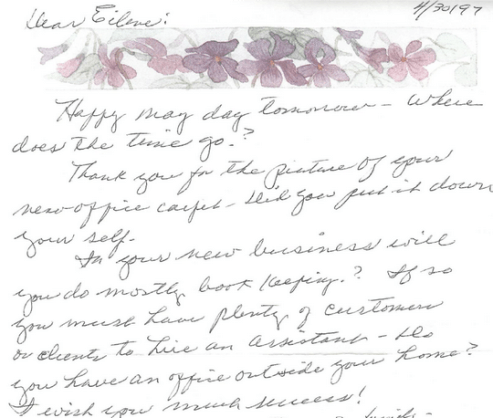 4/30/97
Dear Eilene:
Happy may day tomorrow - Where
does the time go.?
Thank you for the picture of your
new office carpet - Did you put it down
your self.
In your new business will
you do mostly book keeping.? If so
you must have plenty of customers
or clients to hire an assistant - Do
you have an office outside your home?
I wish you much success!